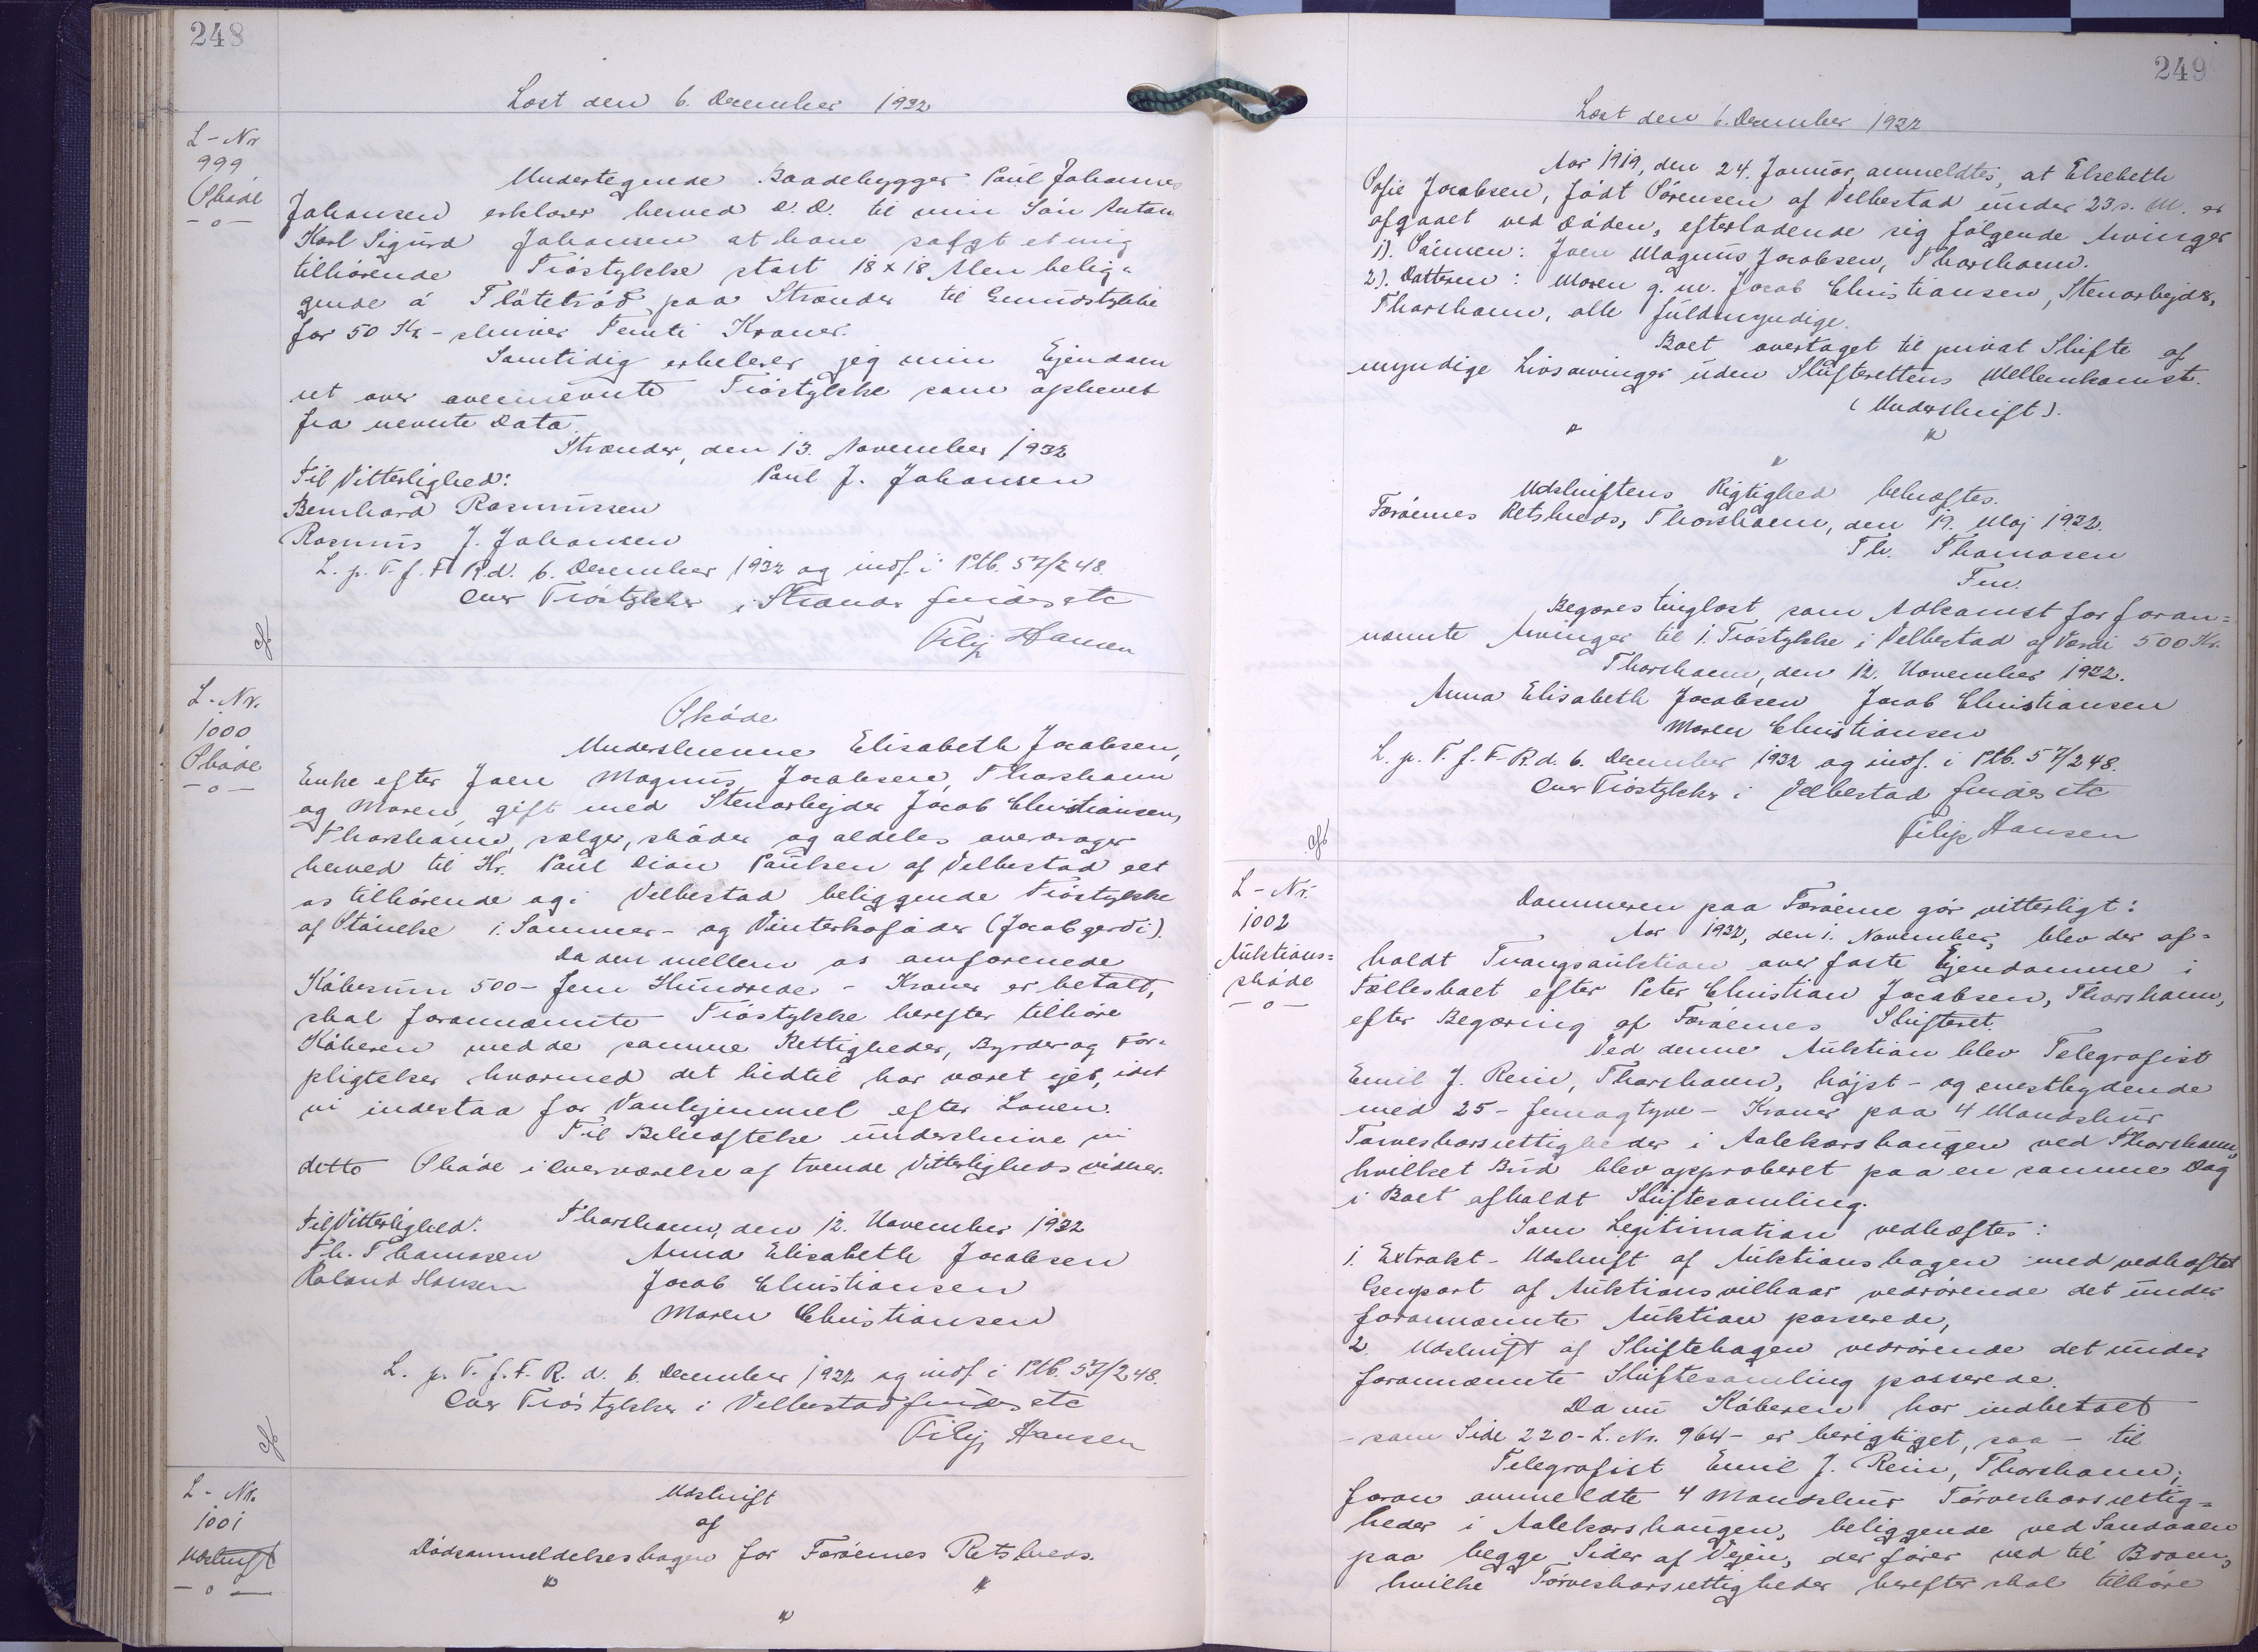 248
Læst den 6. December 1932
L-Nr
999
Skøde
-o-
Undertegnede Baadebygger Paul Johannes
Johansen erklærer herved D.D. til min Søn Anton
Karl Sigurd Johansen at have solgt et mig
tilhørende Trøstykke stort 18 x 18 Alen belig-
gende á Fløtutrøð paa Strænder til Grundstykke
for 50 Kr - skriver Femti Kroner.
Samtidig erklærer jeg min Ejendoms
ret over ovennævnte Trøstykke som ophævet
fra nævnte Dato.
Strænder, den 13. November 1932
Til Vitterlighed: Paul J. Johansen
Bernhard Rasmussen
Rasmus J. Johansen
L. p. T. f. F. R d. 6. December 1932 og indf. i Ptb. 57/248.
Over Trøstykker i Strænder findes etc
Filip Hansen
L-Nr.
1000
Skøde
-o-
Skøde
Underskrevne Elisabeth Jacobsen,
Enke efter Joen Magnus Jacobsen, Thorshavn
og Maren, gift med Stenarbejder Jacob Christiansen,
Thorshavn, sælger, skøder og aldeles overdrager
herved til Hr. Paul Dion Paulsen af Velbestad det
os tilhørende og i Velbestad beliggende Trøstykke
af Støncke i Sommer- og Vinterkofóder (Jacobgerdi).
Da den mellem os omforenede
Købesum 500 - Fem Hundrede - Kroner er betalt,
skal forannævnte Trøstykke herefter tilhøre
Køberen med de samme Rettigheder, Byrder og For-
pligtelser hvormed det hidtil har været ejet, idet
vi indestaa for Vanhjemmel efter Loven.
Til Bekræftelse underskrive vi
dette Skøde i Overværelse af tvende Vitterlighedsvidner.
Thorshavn, den 12. November 1932
Til Vitterlighed:
Th. Thomasen Anna Elisabeth Jacobsen
Roland Hansen Jacob Christiansen
Maren Christiansen
L. p. T. f. F. R. d. 6. December 1932 og indf. i Ptb. 57/248.
Over Trøstykker i Velbestad findes etc
Filip Hansen
L- Nr.
1001
Udskrift
-o-
Udskrift
af
Dødsanmeldelsesbogen for Færøernes Retskreds.
249
Læst den 6. December 1932
Aar 1919, den 24. Januar, anmeldtes, at Elsebeth
Sofie Jacobsen, født Sørensen af Velbestad under 23 s. M. er
afgaaet ved Døden, efterladende sig følgende Arvinger
1). Sønnen: Joen Magnus Jacobsen, Thorshavn.
2). Datteren: Maren g. m. Jacob Christiansen, Stenarbejder,
Thorshavn, alle fuldmyndige.
Boet overtaget til privat Skifte af
myndige Livsarvinger uden Skifterettens Mellemkomst.
(Underskrift).
Udskriftens Rigtighed bekræftes.
Færøernes Retskreds, Thorshavn, den 19. Maj 1932.
Th. Thomasen
Fm.
Begæres tinglæst som Adkomst for foran-
nævnte Arvinger til 1. Trøstykke i Velbestad af Værdi 500 Kr.
Thorshavn, den 12. November 1932.
Anna Elisabeth Jacobsen Jacob Christiansen
Maren Christiansen
L. p. T. f. F. R. d. 6. December 1932 og indf. i Ptb. 57/248.
Over Trøstykker i Velbestad findes etc
Filip Hansen
L-Nr.
1002
Auktions-
skøde
-o-
Dommeren paa Færøerne gør vitterligt:
Aar 1932, den 1. November, blev der af-
holdt Tvangsauktion over faste Ejendomme i
Fællesboet efter Peter Christian Jacobsen, Thorshavn,
efter Begæring af Færøernes Skifteret.
Ved denne Auktion blev Telegrafist
Emil J. Rein, Thorshavn, højst- og enestbydende
med 25 - femogtyve - Kroner paa 4 Mandskur
Tørveskærsrettigheder i Aalekærshaugen ved Thorshavn,
hvilket Bud blev approberet paa en samme Dag
i Boet afholdt Skiftesamling.
Som Legitimation vedhæftes:
1. Extrakt-Udskrift af Auktionsbogen med vedhæftet
Genpart af Auktionsvilkaar vedrørende det under
forannævnte Auktion passerede,
2. Udskrift af Skiftebogen vedrørende det under
forannævnte Skiftesamling passerede.
Da nu Køberen har indbetalt
- som Side 220 - L. Nr. 964 - er berigtiget, saa - til
Telegrafist Emil J. Rein, Thorshavn,
foran ommeldte 4 Mandskur Tørveskærsrettig-
heder i Aalekærshaugen, beliggende ved Sandaaen
paa begge Sider af Vejen, der fører ned til Broen,
hvilke Tørveskærsrettigheder herefter skal tilhøre